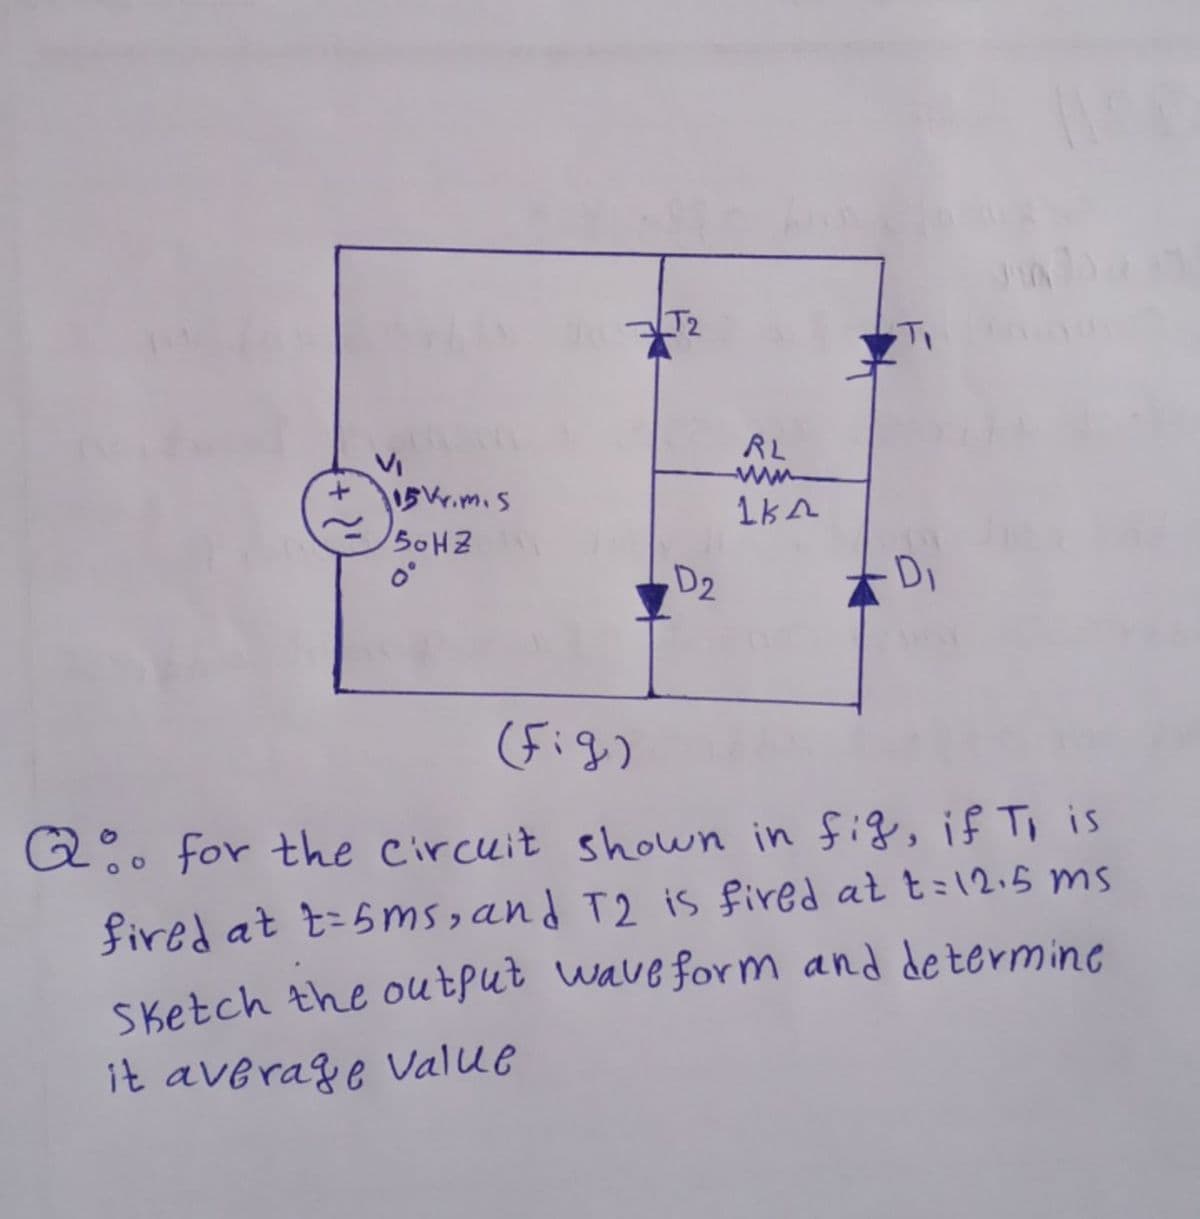 T2
T1
V1
+
15 Vr.m.s
50HZ
0°
RL
1kΩ
D2
D1
(Fig)
Q: for the circuit shown in fig, if T1 is
fired at t=5ms, and T2 is fired at t=12.5 ms
sketch the output waveform and determine
it average value